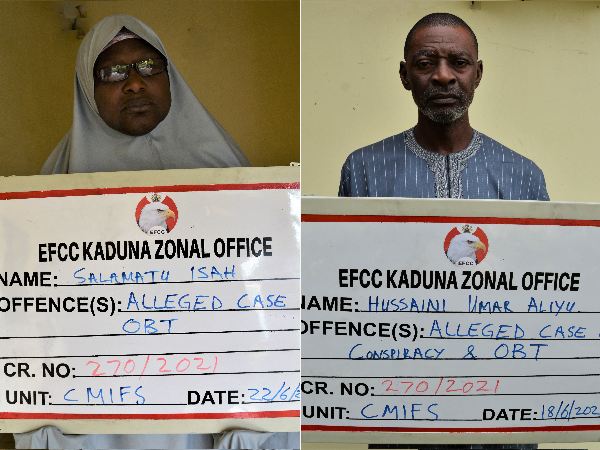 EFCC
EFCC KADUNA ZONAL OFFICE
NAME: SALAMATU ISAH
OFFENCE(S): ALLEGED CASE
OBT
CR. NO: 270/2021
UNIT: CMIFS DATE: 22/6/2
EFCC
EFCC KADUNA ZONAL OFFICE
NAME: HUSSAINI UMAR ALIYU.
OFFENCE(S): ALLEGED CASE
CONSPIRACY & OBT
CR. NO: 270/2021
UNIT: CMIFS DATE: 18/6/202